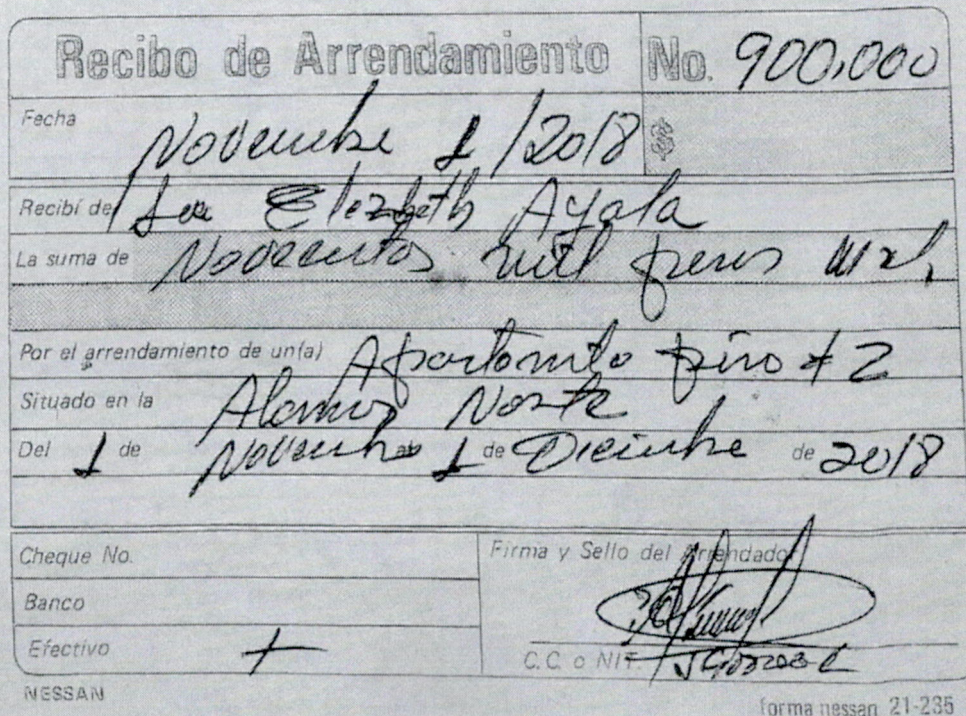 Recibo de Arrendamiento No. 900,000
Fecha Noviembre 1 / 2018 $
Recibí de Elezbeth Ayala
La suma de Novecientos mil pesos
Por el arrendamiento de un(a) Apartamento piso # 2
Situado en la Alamos Norte
Del 1 de Noviembre al 1 de Diciembre de 2018
Cheque No. Firma y Sello del Arrendador
Banco
Efectivo +
C.C. o NIT.
NESSAN forma nessan 21-235